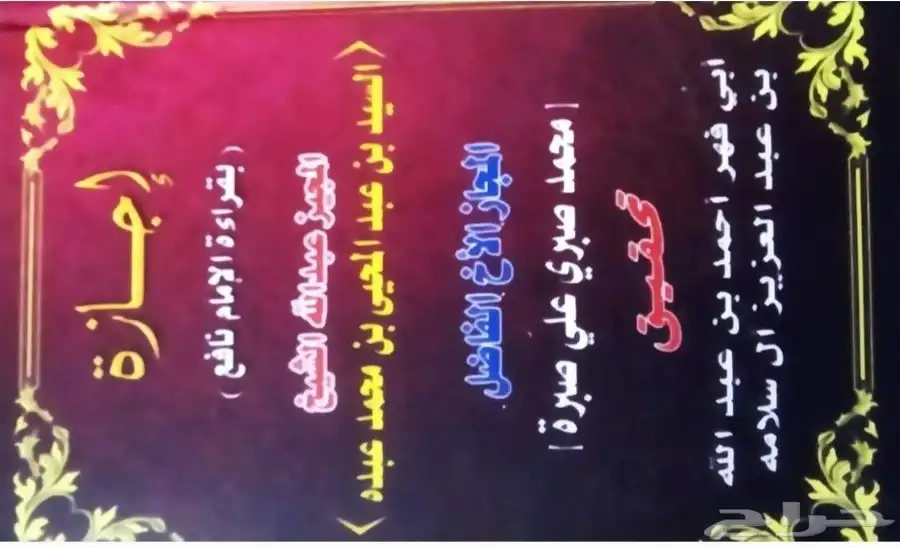 إجازة
( بقراءة الإمام نافع )
المجيز عبدالله الشيخ
< السيد بن عبد المحيى بن محمد عبده >
المجاز الأخ الفاضل
[ محمد صبري علي صبرة ]
تحقيق
أبي فهر أحمد بن عبد الله
بن عبد العزيز ال سلامه
حراج